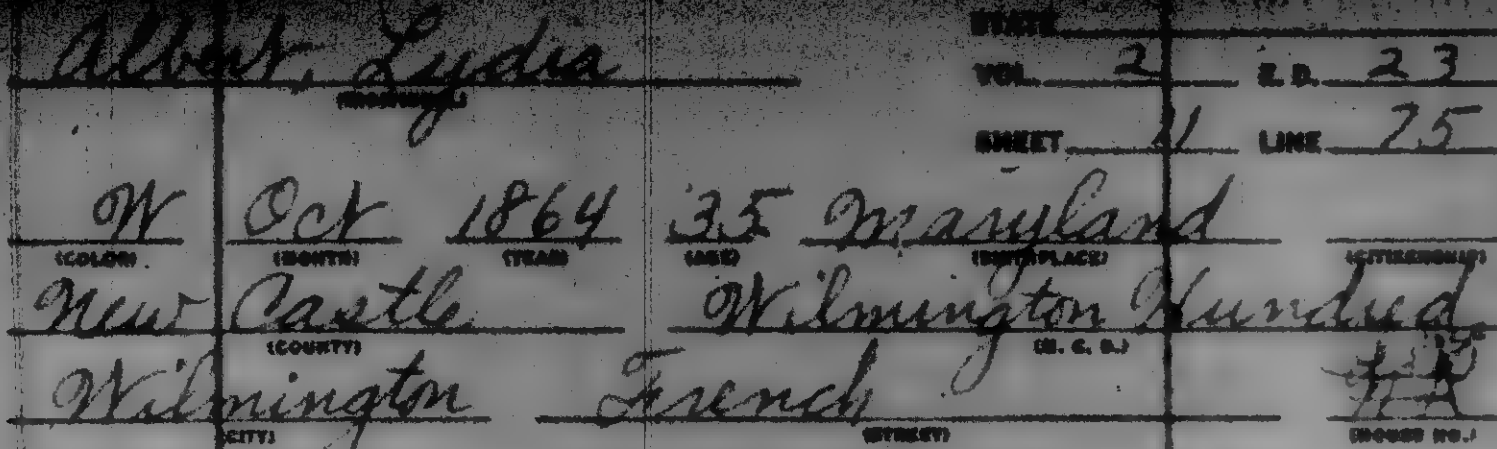 STATE
Albert, Lydia VOL. 2 E. D. 23
(INDIVIDUAL)
SHEET 11 LINE 75
W Oct 1864 35 Maryland
(COLOR) (MONTH) (YEAR) (AGE) (BIRTHPLACE) (CITIZENSHIP)
New Castle Wilmington Hundred
(COUNTY) (M. C. D.)
Wilmington French
(CITY) (STREET) (HOUSE NO.)